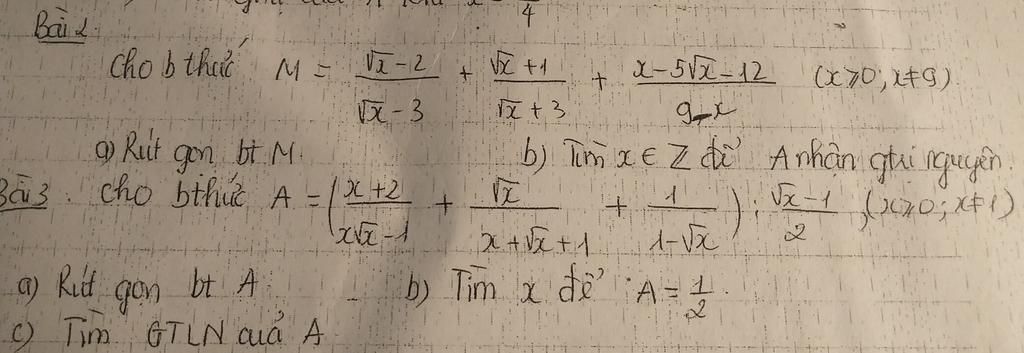 4
Bài 2
Cho b thức M = (√x - 2)/(√x - 3) + (√x + 1)/(√x + 3) + (x - 5√x - 12)/(9 - x) (x ≥ 0; x ≠ 9)
a) Rút gọn bt M. b) Tìm x ∈ Z để A nhận gtrị nguyên
Bài 3: Cho bthức A = ((x + 2)/(x√x - 1) + √x/(x + √x + 1) + 1/(1 - √x)) : (√x - 1)/2, (x ≥ 0; x ≠ 1)
a) Rút gọn bt A b) Tìm x để A = 1/2.
c) Tìm GTLN cuả A